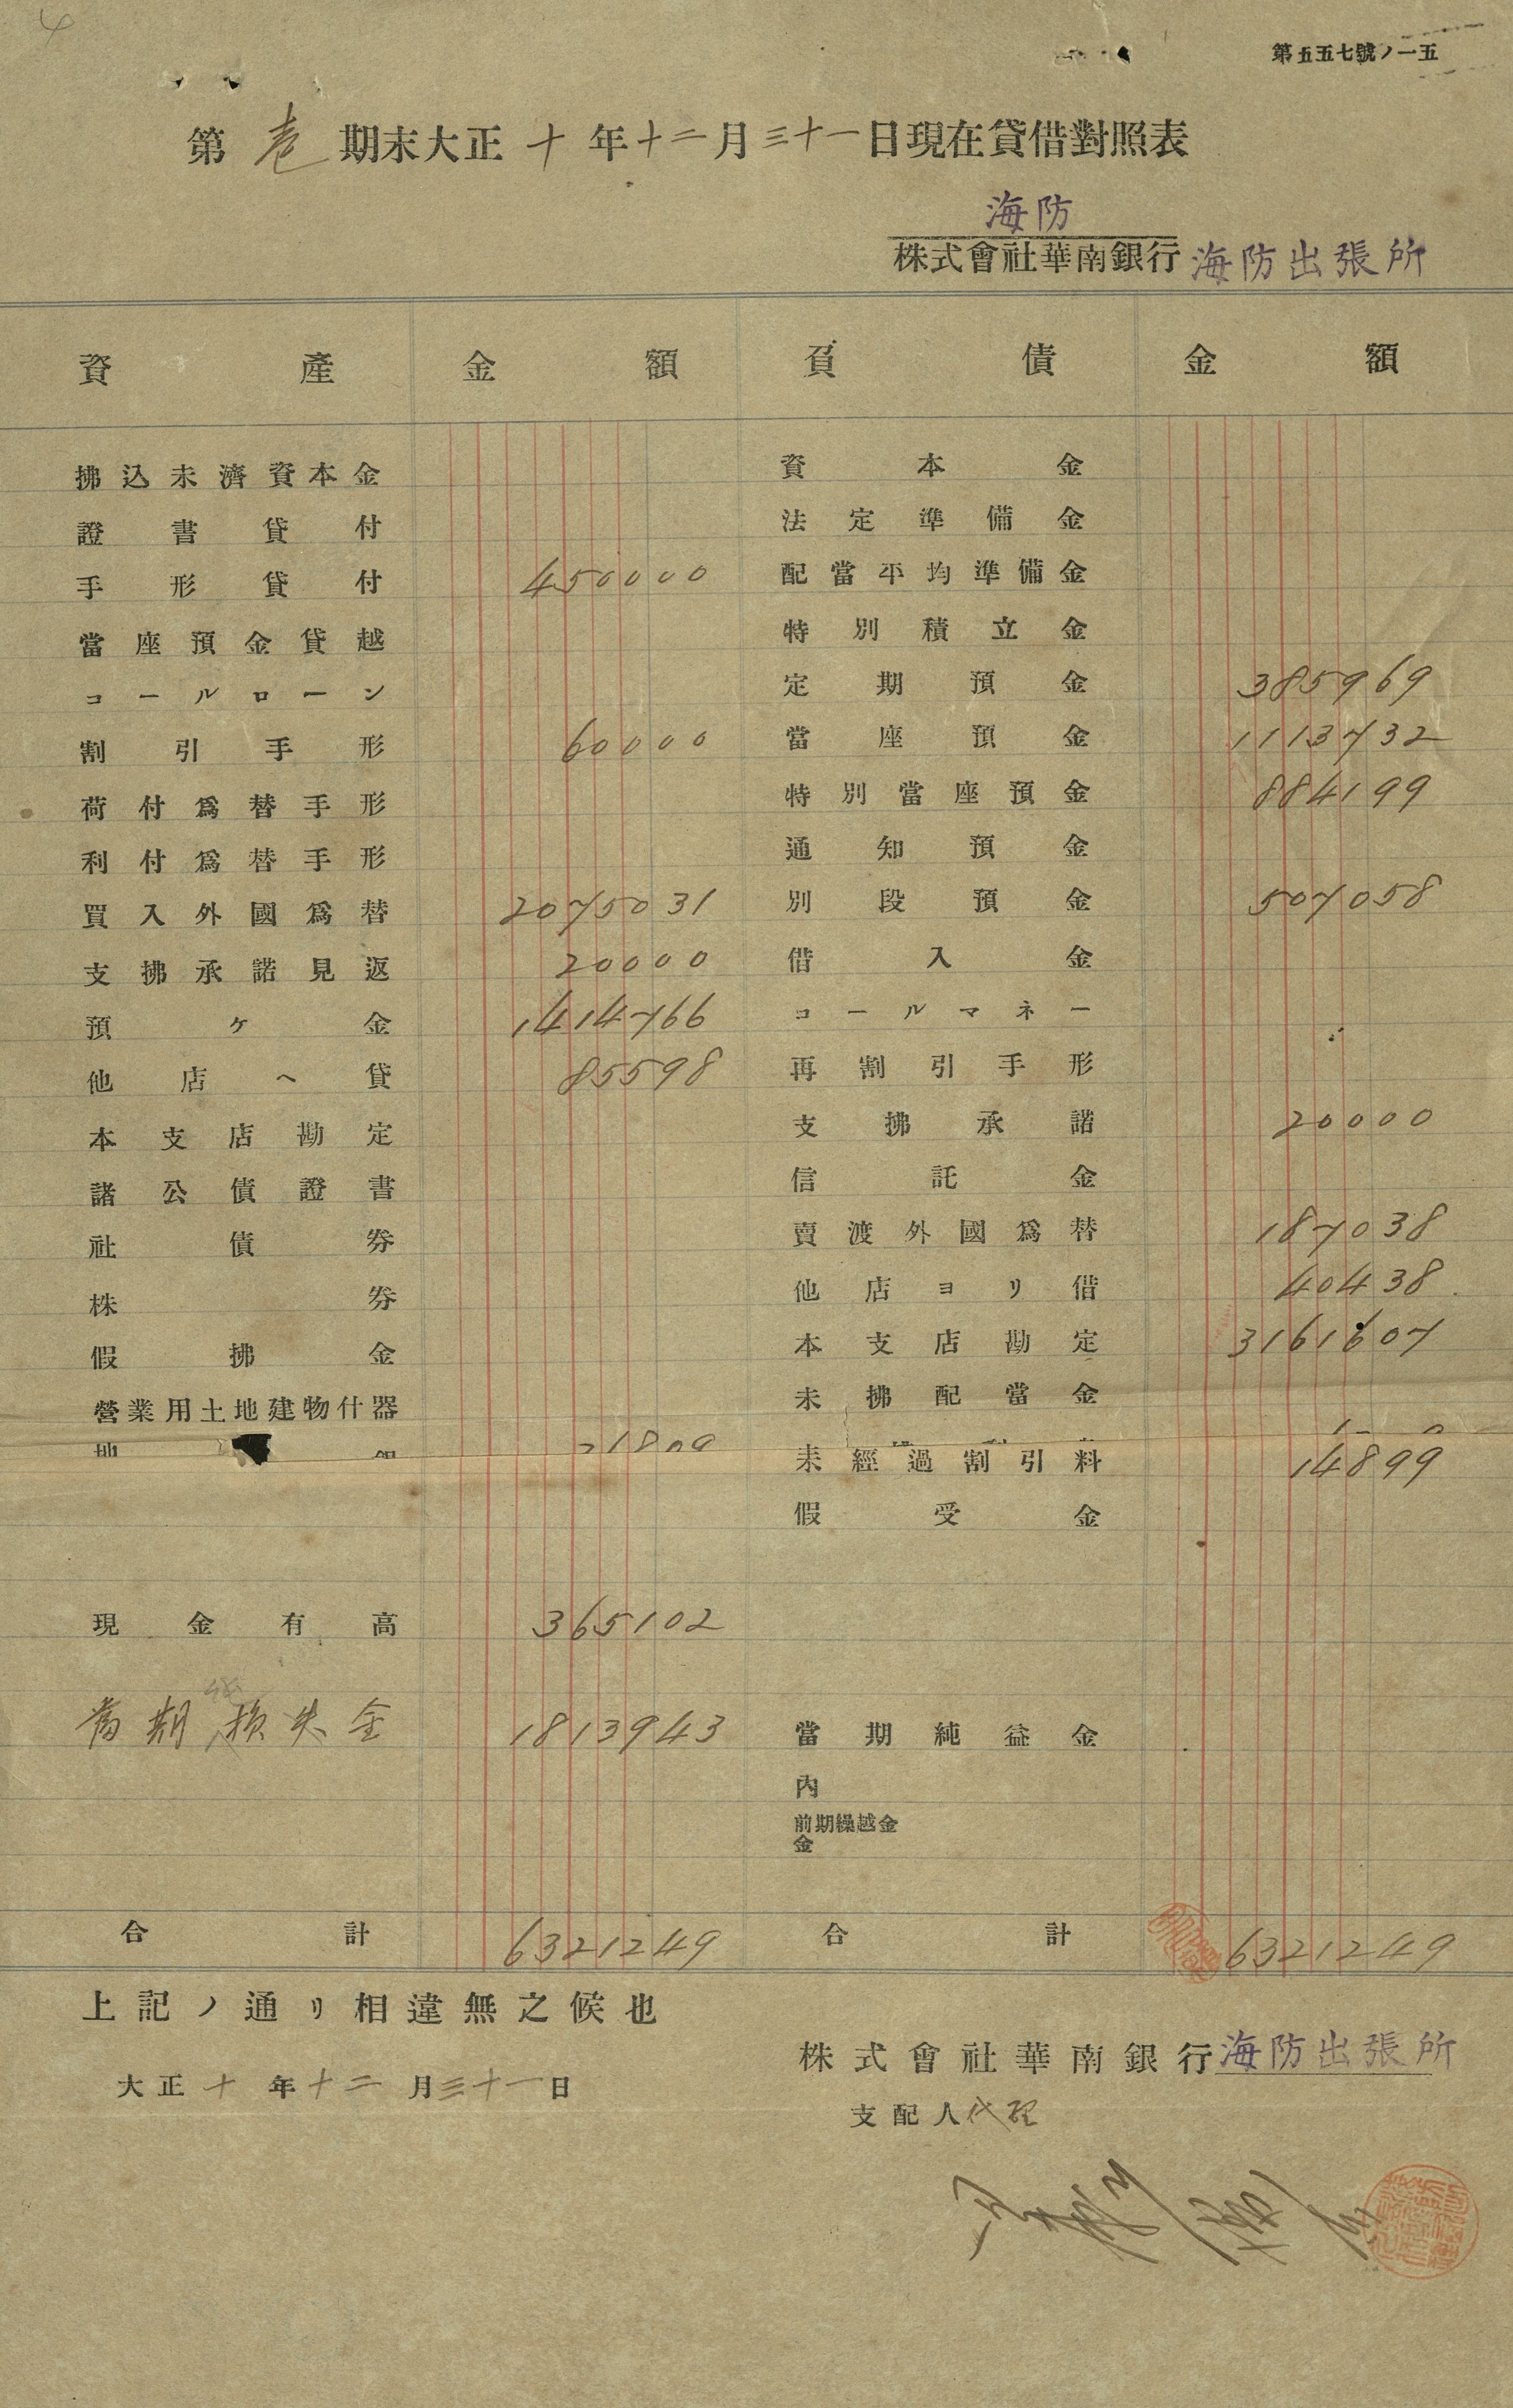 第五五七號ノ一五
第壱期末大正十年十二月三十一日現在貸借對照表
海防
株式會社華南銀行海防出張所
資產 金額 負債 金額
拂込未濟資本金
證書貸付
手形貸付 450000
當座預金貸越
コールローン
割引手形 60000
荷付爲替手形
利付爲替手形
買入外國爲替 2075031
支拂承諾見返 20000
預ケ金 1414766
他店ヘ貸 85598
本支店勘定
諸公債證書
社債劵
株劵
假拂金
營業用土地建物什器
現金有高 365102
當期損失金 1813943
合計 6321249
資本金
法定準備金
配當平均準備金
特別積立金
定期預金 385969
當座預金 1113732
特別當座預金 884199
通知預金
別段預金 507058
借入金
コールマネー
再割引手形
支拂承諾 20000
信託金
賣渡外國爲替 187038
他店ヨリ借 40438
本支店勘定 3161607
未拂配當金
未經過割引料 14899
假受金
當期純益金
內
前期繰越金
金
合計 6321249
上記ノ通リ相違無之候也
大正十年十二月三十一日
株式會社華南銀行海防出張所
支配人代理